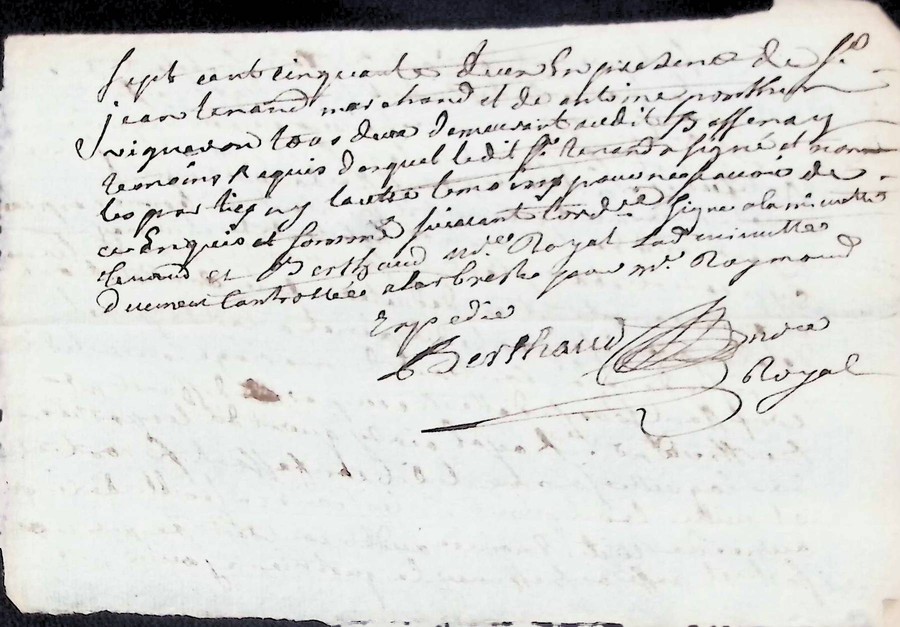 Sept cent cinquante deux En presence de Sr
jean tenaud marchand et de antoine ponthus
vigneron tous deux demeurant audit Bassenay
temoins Requis desquel ledit Sr tenaud a signé et non
les parties ny lautre temoins pour ne scavoir de
ce Enquis et sommé suivant lord.ce signe a la minutte
tenaud et Berthaud n.re Royal Lad minutte
duement Controllée a larbresle par Mr Raymond
Expedie
Berthaud n.re
Royal